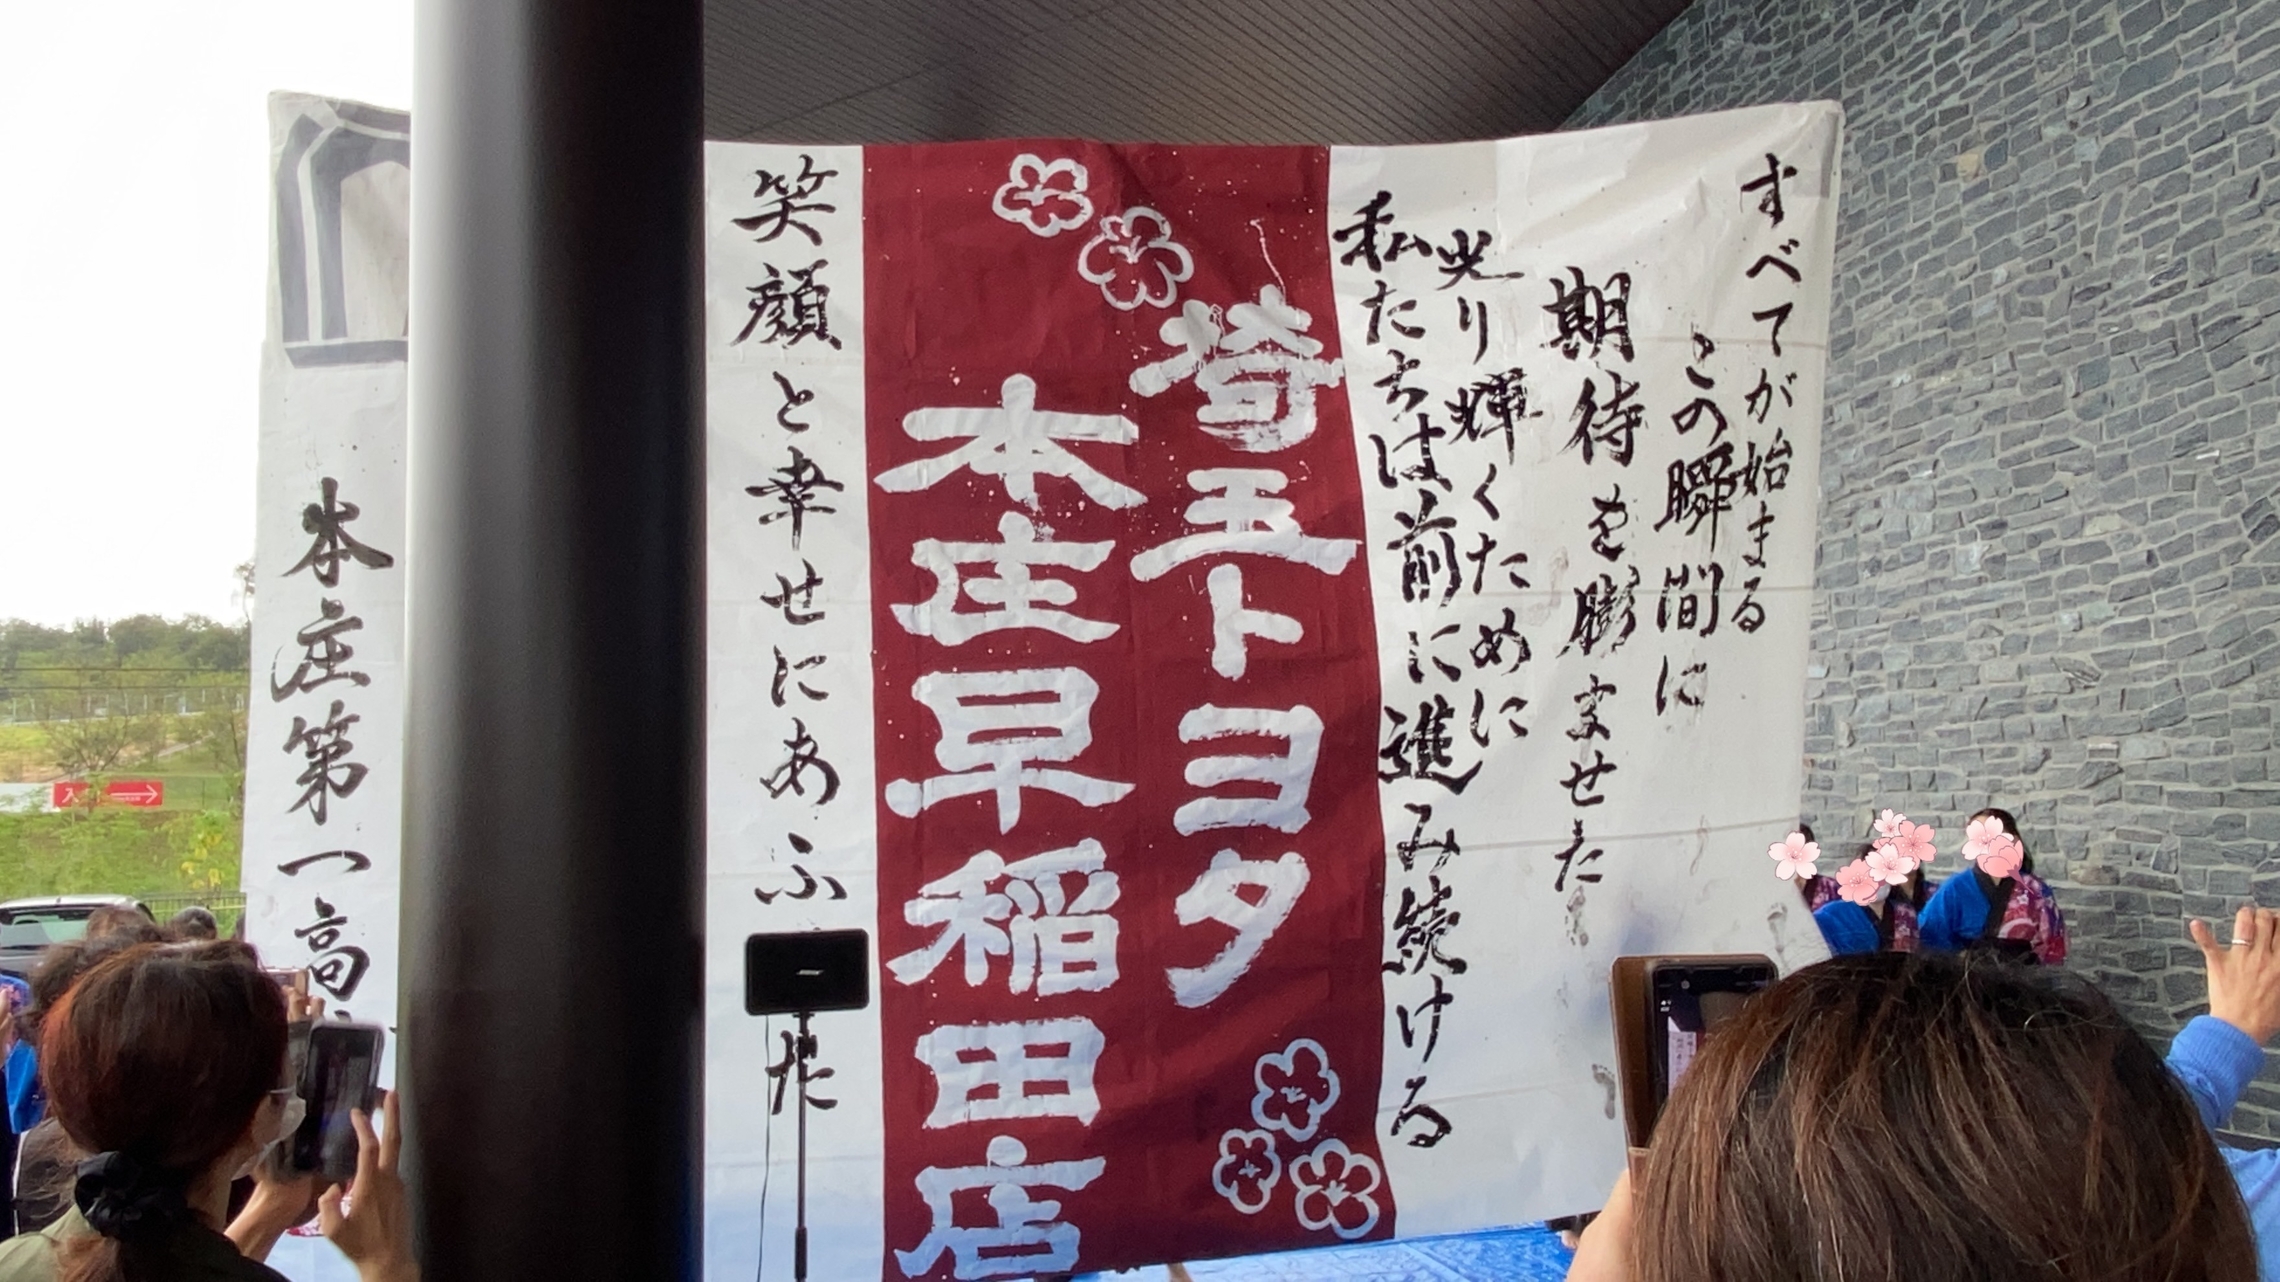 すべてが始まる
この瞬間に
期待を膨ませた
光り輝くために
私たちは前に進み続ける
埼玉トヨタ
本庄早稲田店
笑顔と幸せにあふ
た
本庄第一高
入
BOSE